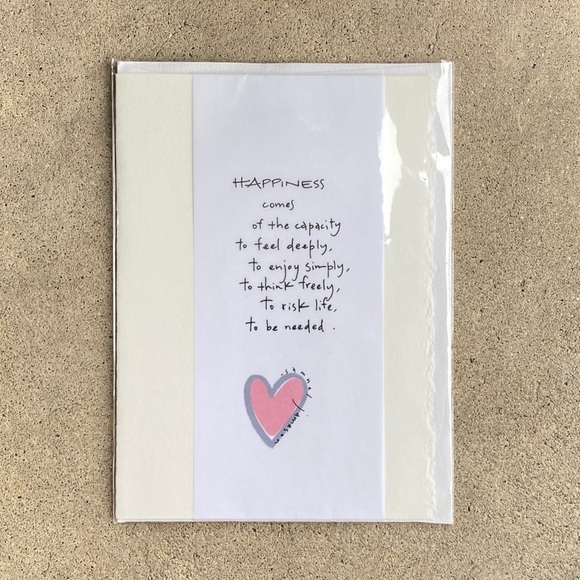 HAPPINESS
comes
of the capacity
to feel deeply,
to enjoy simply,
to think freely,
to risk life,
to be needed.
samuel jameson